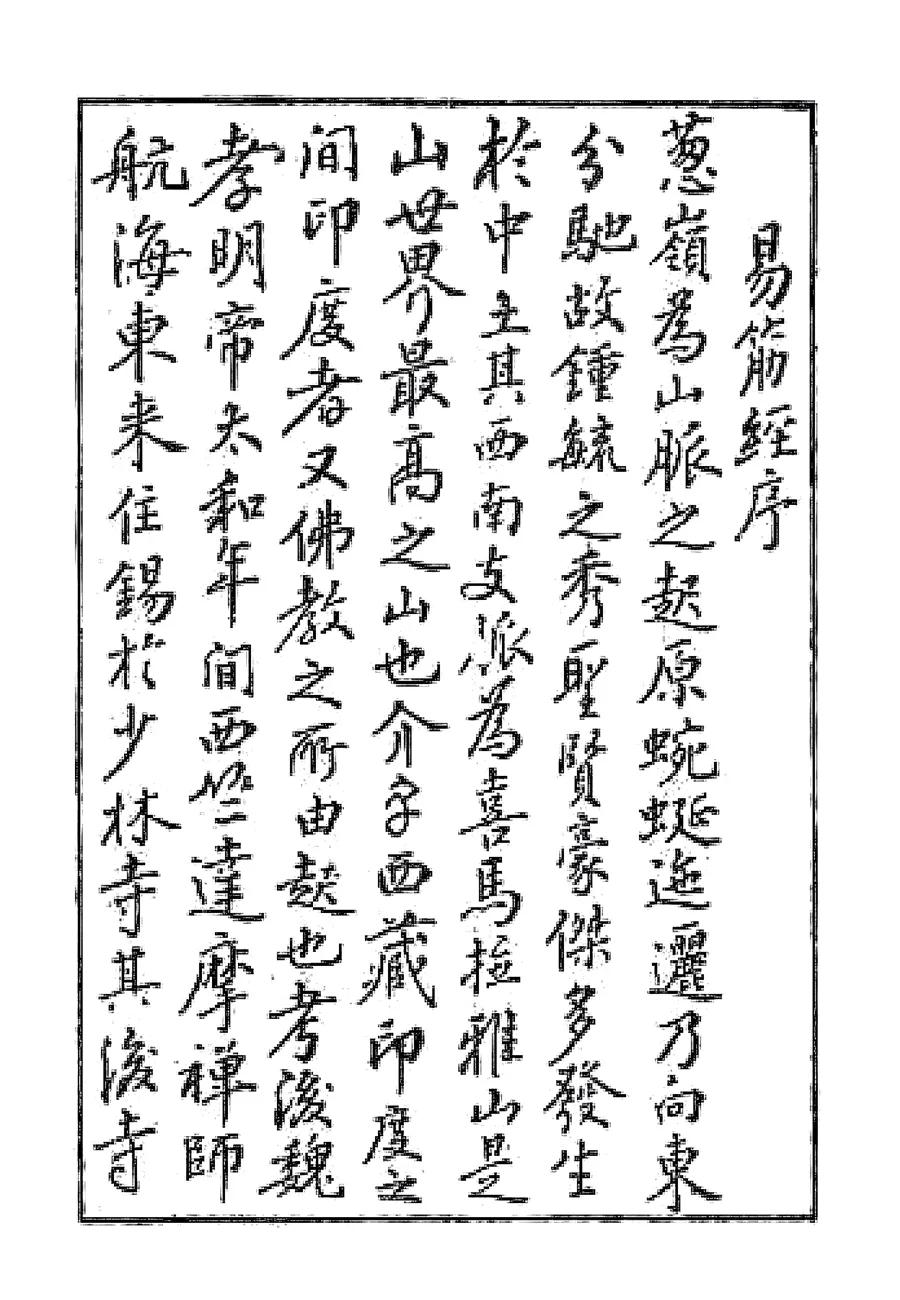 易筋經序
葱嶺為山脈之起原蜿蜒迤邐乃向東
分馳故鍾毓之秀聖賢豪傑多發生
於中土其西南支派為喜馬拉雅山是
山世界最高之山也介乎西藏印度之
間印度者又佛教之所由起也考後魏
孝明帝太和年間西竺達摩禪師
航海東来住錫於少林寺其後寺